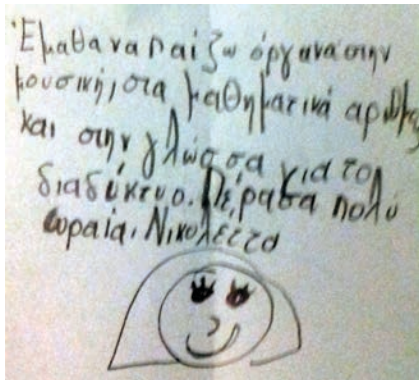 Έμαθα να παίζω όργανα στην
μουσική, στα μαθηματικά αριθμούς
και στην γλώσσα για το
διαδύκτυο. Πέρασα πολύ
ωραία. Νικολέττα